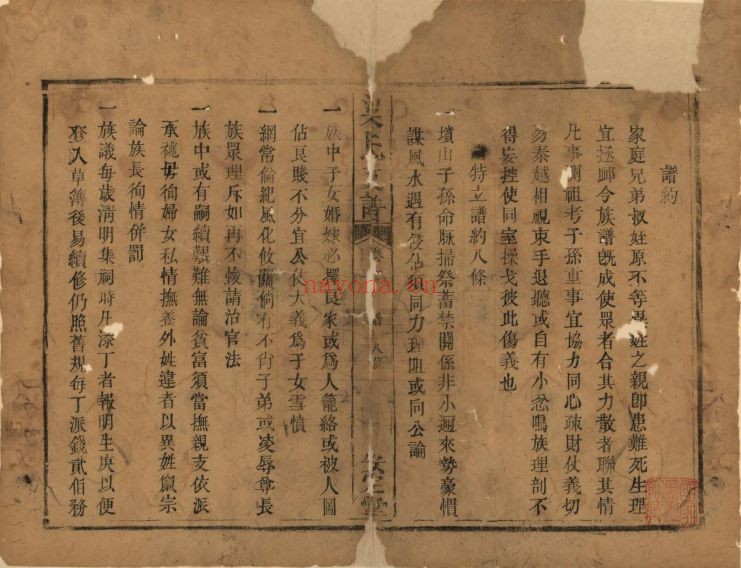 譜約
家庭兄弟叔姪原不等異姓之親卽患難死生理
宜拯卹今族譜旣成使眾者合其力散者聯其情
凡事關祖考子孫重事宜協力同心疎財仗義切
勿秦越相視束手退聽或自有小忿鳴族理剖不
得妄控使同室操戈彼此傷義也
特立譜約八條
一 墳山子孫命脉掃祭蓄禁關係非小邇來勢豪慣
謀風水遇有侵佔須同力理阻或向公論
氏 譜 八條 堂
一 族中子女婚嫁必擇良家或爲人籠絡或被人圖
佔良賤不分宜公伙大義爲子女雪憤
一 網常倫紀風化攸關倘有不肖子弟或凌辱尊長
族眾理斥如再不悛請治官法
一 族中或有嗣續艱難無論貧富須當撫親支依派
承祧毋徇婦女私情撫養外姓違者以異姓亂宗
論族長徇情併罰
一 族議每歲淸明集祠時凡添丁者報明生庚以便
登入草簿後易續修仍照舊規每丁派錢貳佰務
nayona.cn